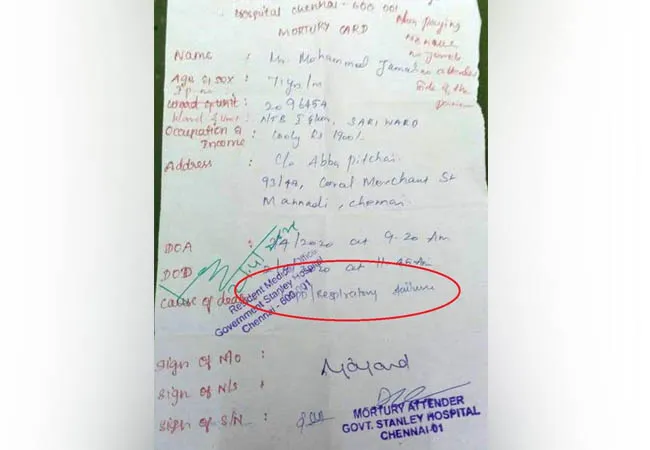 Hospital Chennai - 600 001
MORTURY CARD
Non paying
no jewels
no attender
side of the
Name : Mr. Mohammed Jamal
Age & sox : 71 yrs/m
Ip no : 2096454
Ward of unit : NTB I floor, SARI WARD
Occupation & Income : Cooly Rs 1900/-
Address : C/o Abba Pitchai
93/49, Coral Merchant St
Mannadi, Chennai
DOA : 2/4/2020 at 9.20 Am
DOD : 2020 at 11.45 Am
Cause of death : / Respiratory failure
Resident Medical Officer
Government Stanley Hospital
Chennai - 600 001
Sign of M/O :
Sign of N/S :
Sign of S/N :
MORTURY ATTENDER
GOVT. STANLEY HOSPITAL
CHENNAI-01